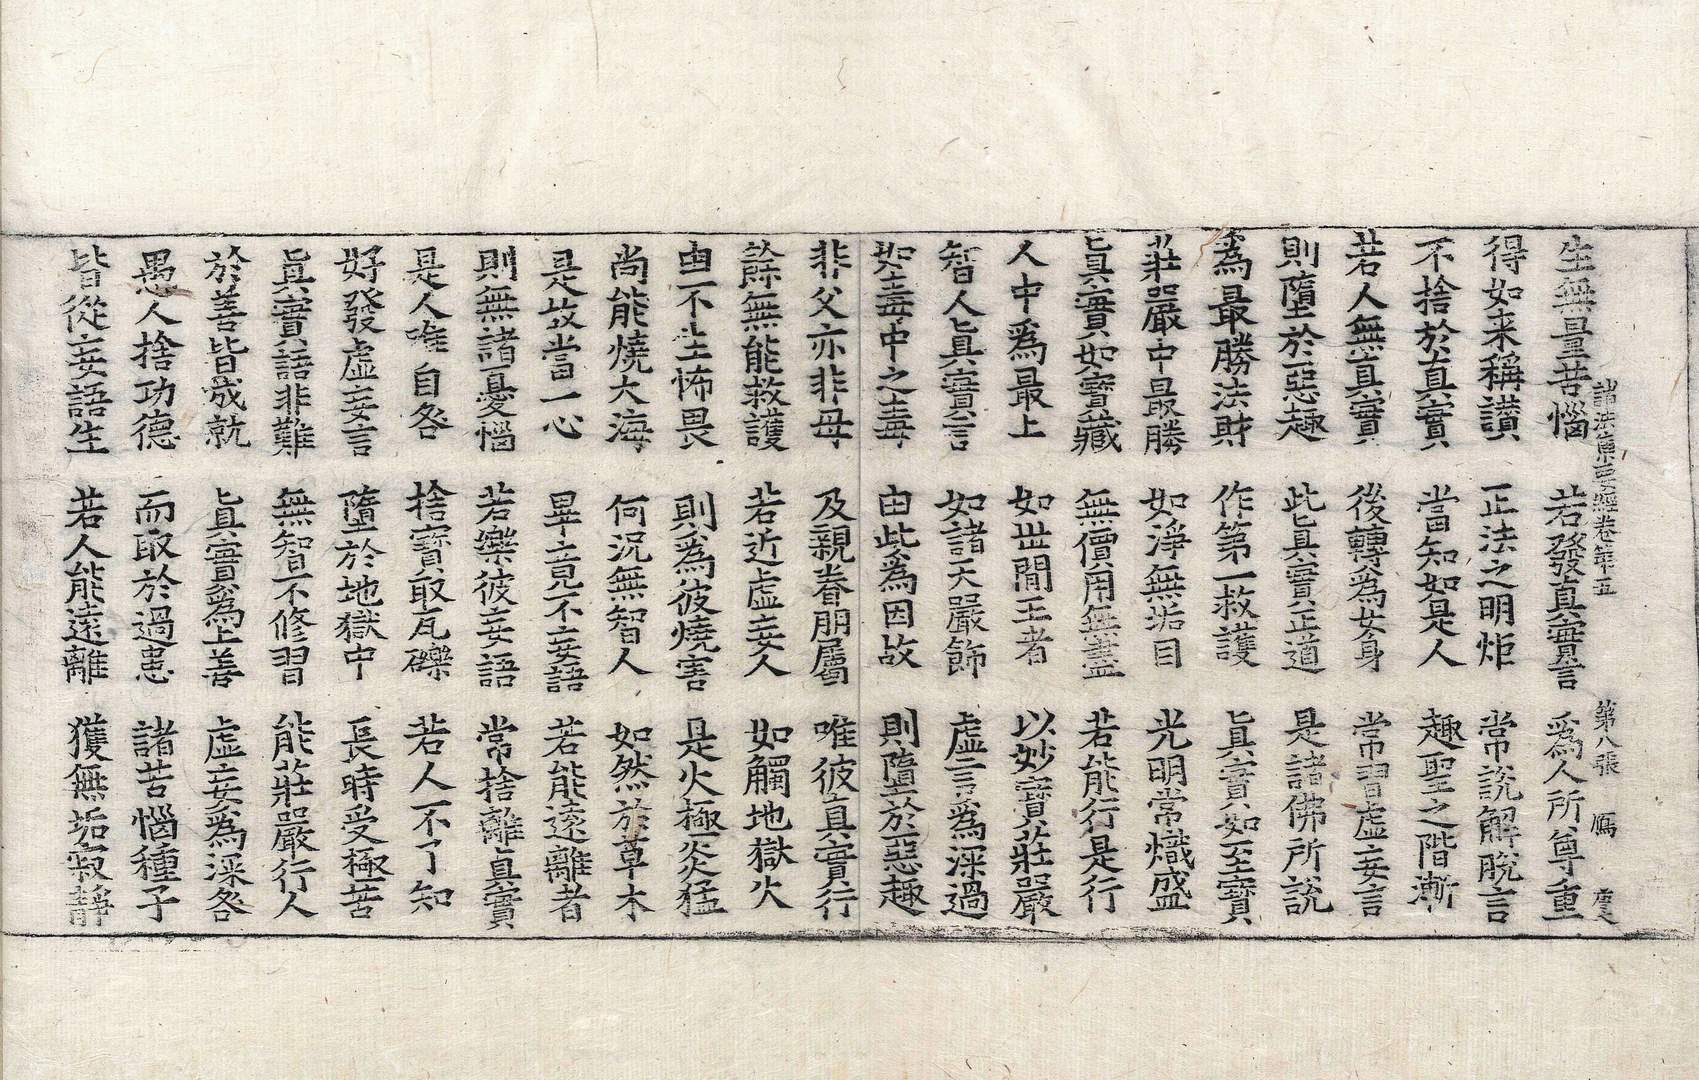 諸法集要經卷第五 第八張 鴈
生無量苦惱 若發真實言 為人所尊重
得如来稱讃 正法之明炬 常說解脫言
不捨於真實 當知如是人 趣聖之階漸
若人無真實 後轉為女身 常習虛妄言
則墮於惡趣 此真實正道 是諸佛所說
為最勝法財 作第一救護 真實如至寶
莊嚴中最勝 如淨無垢目 光明常熾盛
真實如寶藏 無價用無盡 若能行是行
人中為最上 如世間王者 以妙寶莊嚴
智人真實言 如諸天嚴飾 虛言為深過
如毒中之毒 由此為因故 則墮於惡趣
非父亦非母 及親眷朋屬 唯彼真實行
餘無能救護 若近虛妄人 如觸地獄火
由不生怖畏 則為彼燒害 是火極炎猛
尚能燒大海 何況無智人 如然於草木
是故當一心 畢竟不妄語 若能遠離者
則無諸憂惱 若樂彼妄語 常捨離真實
是人唯自咎 捨寶取瓦礫 若人不了知
好發虛妄言 墮於地獄中 長時受極苦
真實語非難 無智不修習 能莊嚴行人
於善皆成就 真實為上善 虛妄為深咎
愚人捨功德 而取於過患 諸苦惱種子
皆從妄語生 若人能遠離 獲無垢寂靜